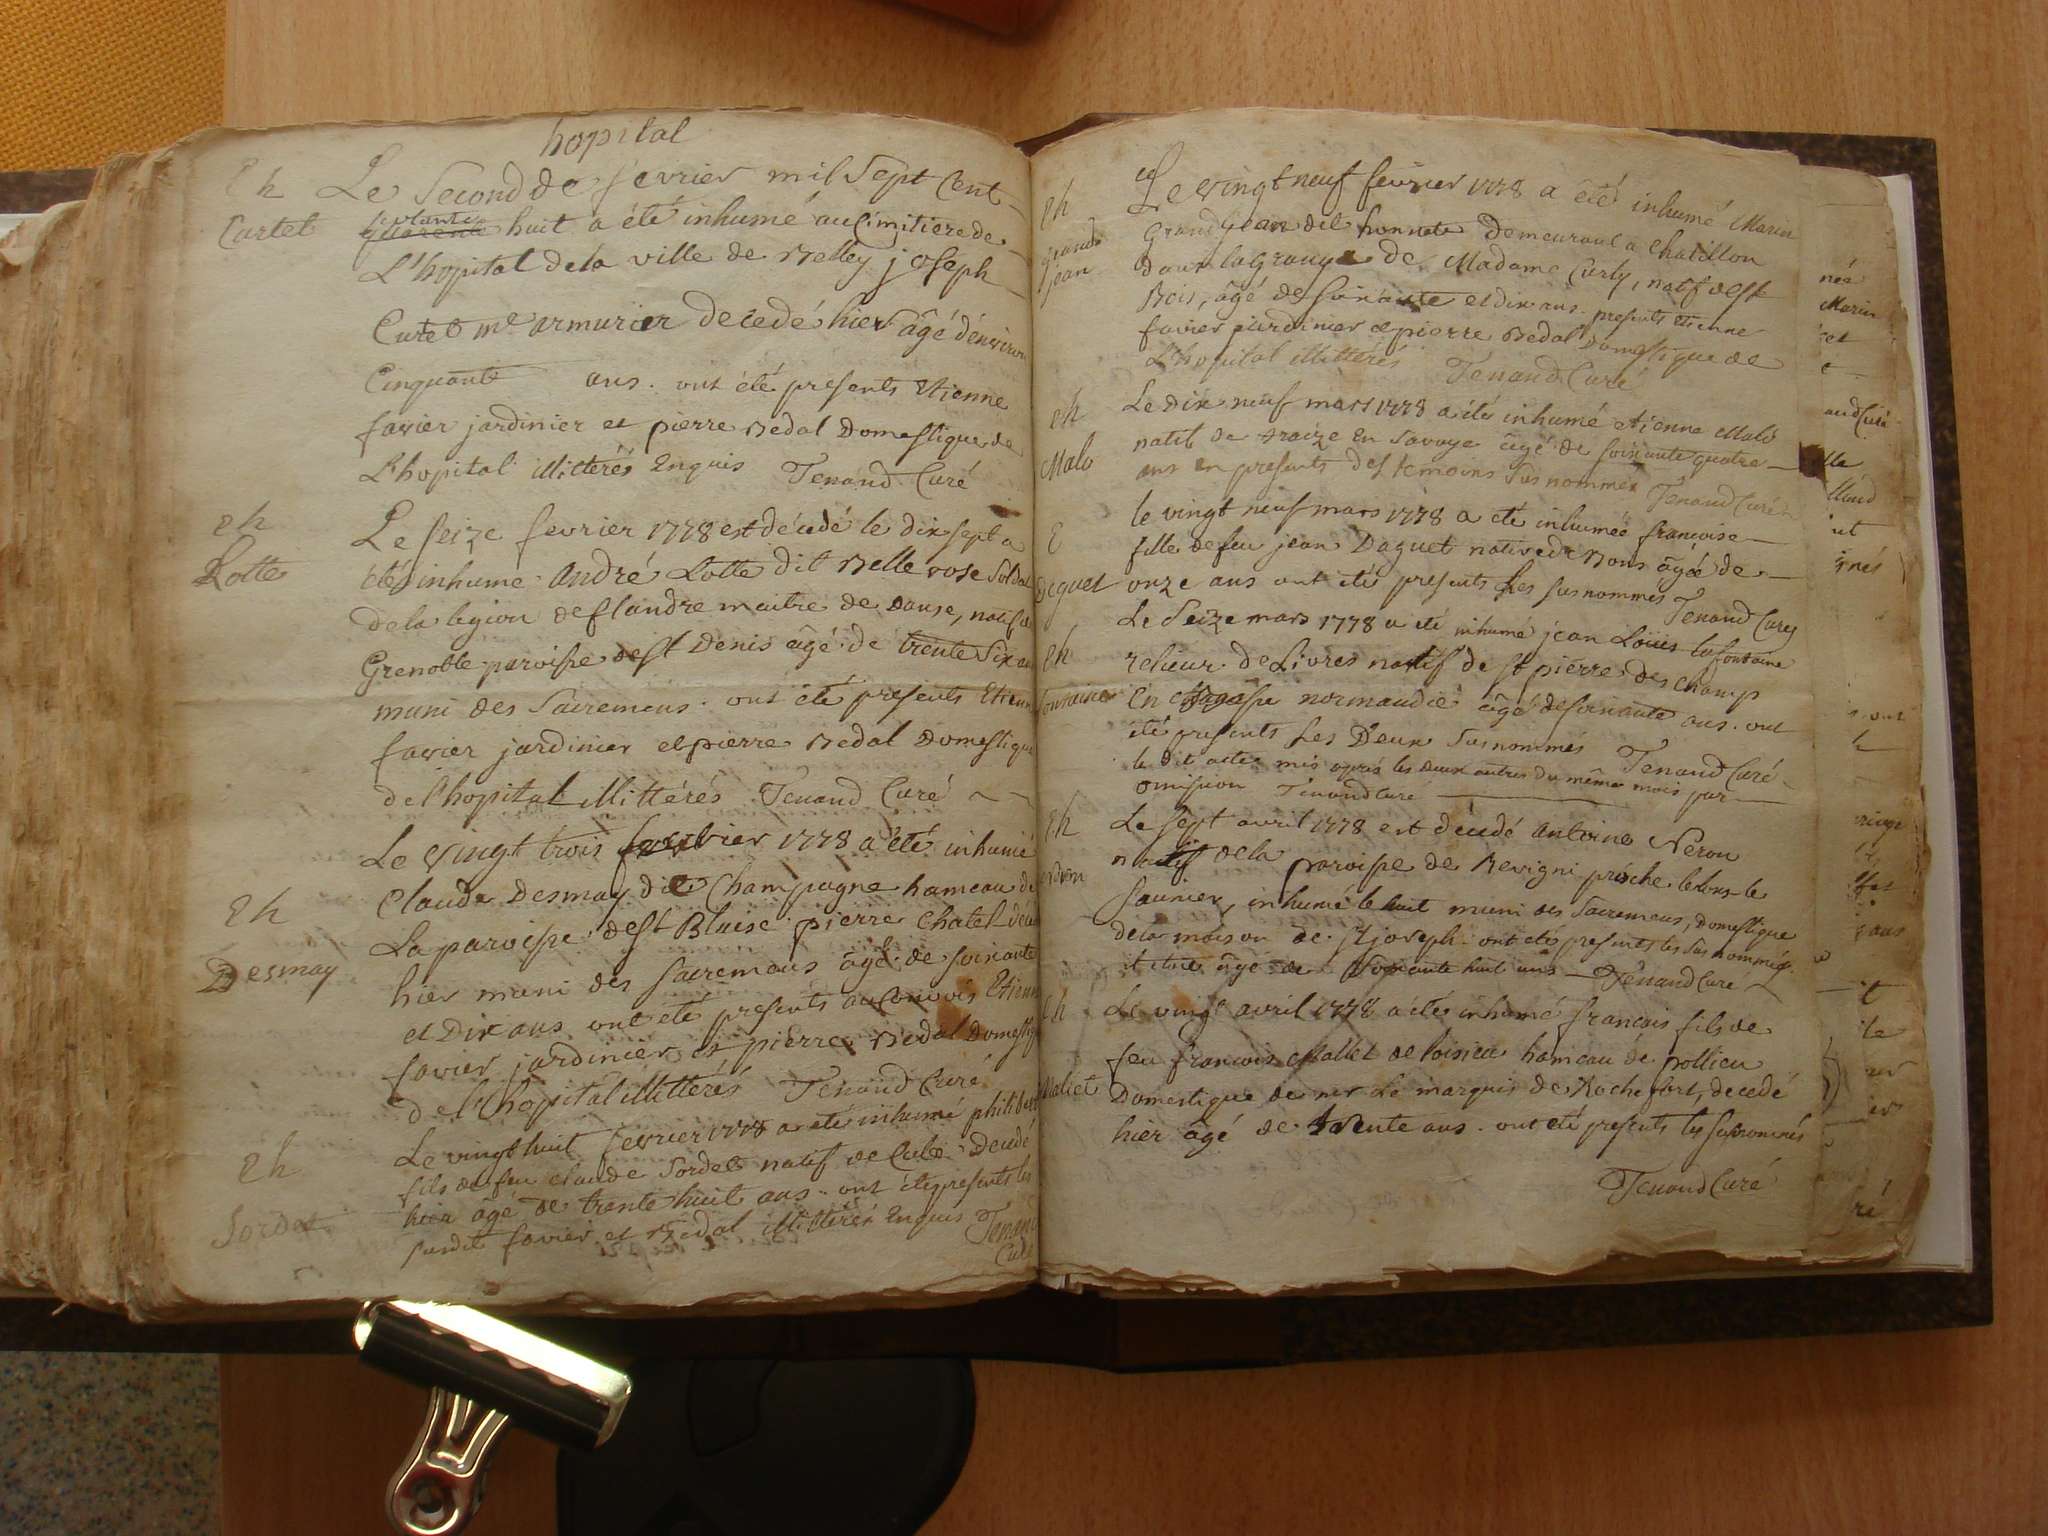 hopital
Eh
Curtet
Le Second de fevrier mil Sept Cent
septante
quarente huit a été inhumé au Cimitiere de
L'hopital de la ville de Belley joseph
Curtet me armurier decedé hier âgé d'environ
Cinquante ans. ont été presents Etienne
favier jardinier et pierre Bedal Domestique de
L'hopital illitterés Enquis Tenand Curé
Eh
Lotte
Le seize fevrier 1778 est décédé le dix sept a
été inhume André Lotte dit Belle rose Soldat
de la legion de flandre maitre de Danse, natif de
Grenoble paroisse de St Denis âgé de trente Six ans
muni des Sacremens. ont été presents Etienne
favier jardinier et pierre Bedal Domestique
de l'hopital illittérés Tenand Curé
Eh
Desmay
Le vingt trois fevrier 1778 a été inhumé
Claude Desmay dit Champagne hameau de
La paroisse de St Blaise pierre Chatel décédé
hier muni des sacremans âgé de soixante
et Dix ans ont été presents au Convois Etienne
favier jardinier et pierre Bedal Domestique
de l'hopital illittérés Tenand Curé
Eh
Sordet
Le vingt huit fevrier 1778 a été inhumé philibert
fils de feu claude Sordet natif de Culo Decedé
hier âgé de trente huit ans. ont été presents les
susdit favier et Bedal illittérés Enquis Tenand
Curé
Eh
grand
jean
Le vingt neuf fevrier 1778 a été inhumé Marin
Grandjean dit honnete Demeurant a Chatillon
Dans la Grange de Madame Curly, natif de St
Bois, âgé de soixante et dix ans. presents etienne
favier jardinier et pierre Bedal Domestique de
L'hopital illittérés Tenand Curé
Eh
Malo
Le Dix neuf mars 1778 a été inhumé etienne Malo
natif de traize En Savoye âgé de soixante quatre
ans en presents des temoins Susnommés Tenand Curé
E
Deguet
le vingt neuf mars 1778 a été inhumée françoise
fille de feu jean Daguet native de Bons âgée de
onze ans ont été presents Les susnommes Tenand Curé
Eh
fontaine
Le Seize mars 1778 a été inhumé jean Loüis lafontaine
relieur de Livres natif de st pierre des champ
En normandie âgé de soixante ans. ont
été presents Les Deux Susnommés Tenand Curé
le dit acte mis après les deux autres du même mois par
omission Tenand Curé
Eh
Néron
Le sept avril 1778 est décédé antoine Néron
natif de la paroisse de Revigni prôche lelons-le
Saunier, inhumé le huit muni des Sacremens, Domestique
de la maison de St joseph. ont eté presents les susnommés
âgé de Soixante huit ans Tenand Curé
Eh
Mallet
Le vingt avril 1778 a été inhumé francois fils de
feu francois Mallet de loisieu hameau de pollieu
Domestique de mr Le marquis de Rochefort, decedé
hier âgé de trente ans. ont été presents les susnommés
Tenand Curé